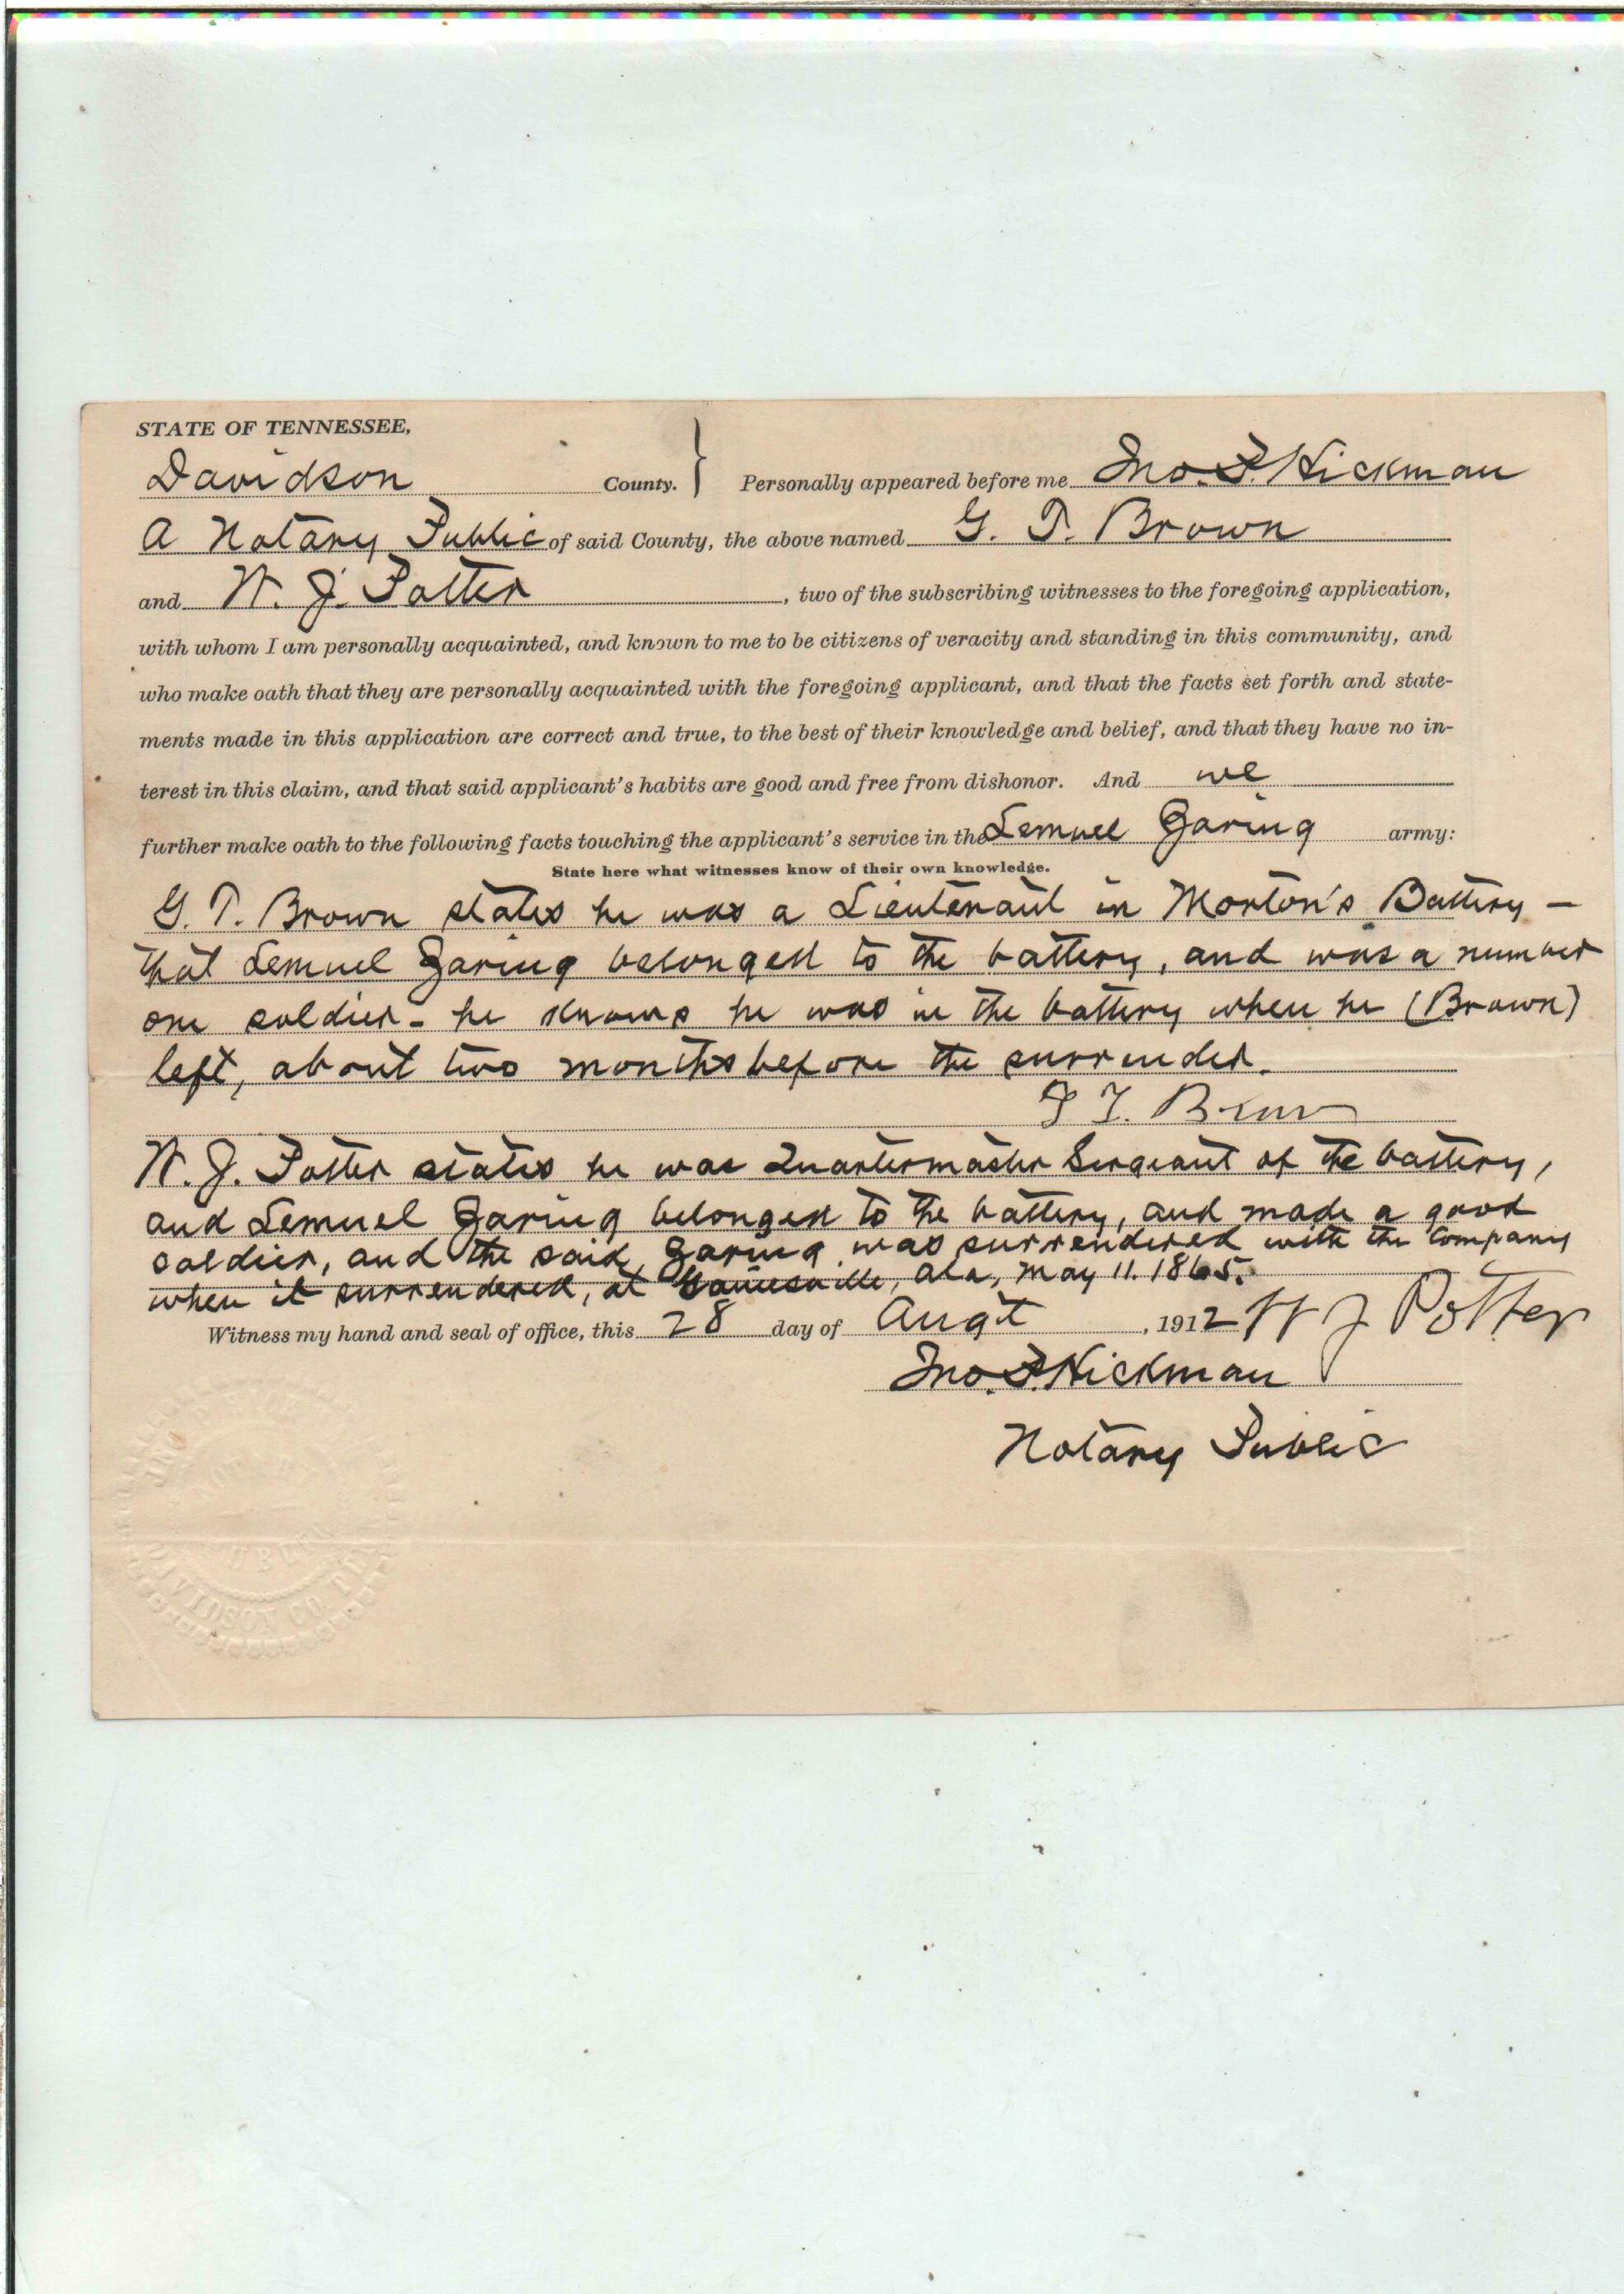 STATE OF TENNESSEE,
Davidson County. } Personally appeared before me Jno. P. Hickman
A Notary Public of said County, the above named G. T. Brown
and W. J. Potter, two of the subscribing witnesses to the foregoing application,
with whom I am personally acquainted, and known to me to be citizens of veracity and standing in this community, and
who make oath that they are personally acquainted with the foregoing applicant, and that the facts set forth and state-
ments made in this application are correct and true, to the best of their knowledge and belief, and that they have no in-
terest in this claim, and that said applicant's habits are good and free from dishonor. And we
further make oath to the following facts touching the applicant's service in the Lemuel Zaring army:
State here what witnesses know of their own knowledge.
G. T. Brown states he was a Lieutenant in Morton's Battery –
that Lemuel Zaring belonged to the battery, and was a number
one soldier – he knows he was in the battery when he (Brown)
left, about two months before the surrender.
G T. Brown
W. J. Potter states he was Quartermaster Sergeant of the battery,
and Lemuel Zaring belonged to the battery, and made a good
soldier, and the said Zaring was surrendered with the Company
when it surrendered, at Gainesville, Ala, May 11. 1865.
Witness my hand and seal of office, this 28 day of Augt, 1912 W J Potter
Jno. P. Hickman
Notary Public
DAVIDSON CO.